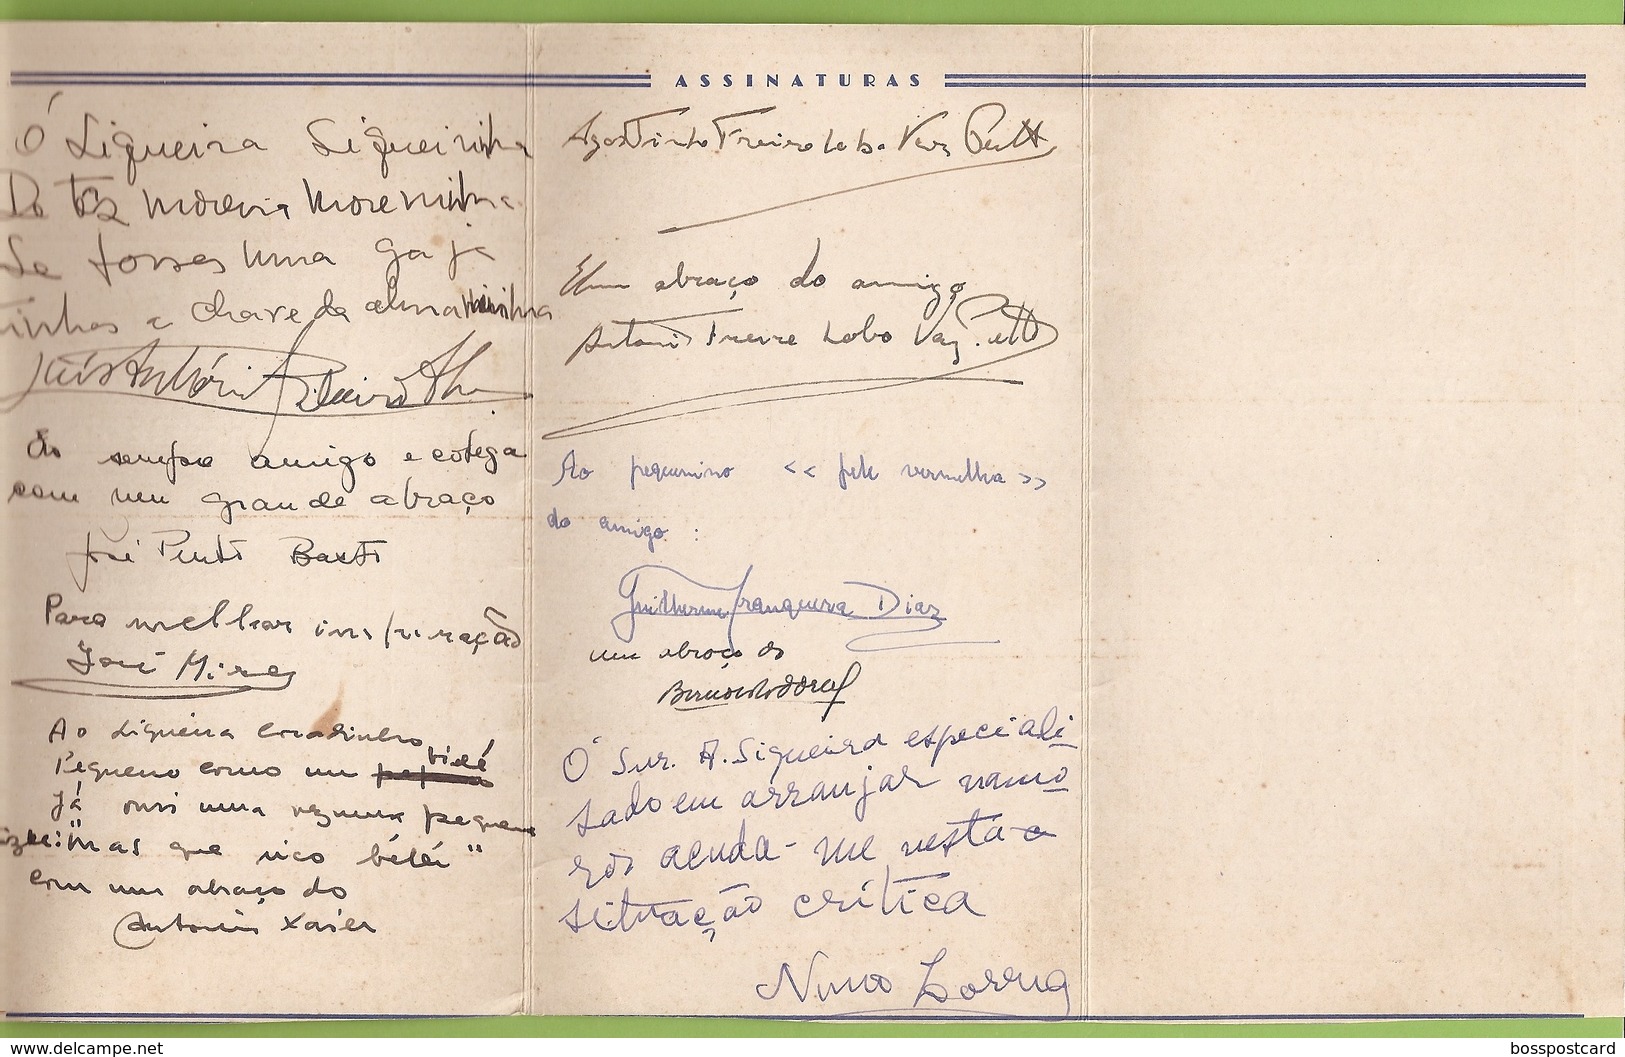 ASSINATURAS
Ó Siqueira Siqueirinha
Da tez morena moreninha
Se fosses uma gaja
tinhas a chave da alma minha
Luís António Ribeiro
Ao sempre amigo e colega
com um grande abraço
José Pinto Basto
Para melhor inspiração
José Mira
Ao Siqueira
Pequeno como um bidé
Já ouvi uma vez uma pequena
dizer: "mas que rico bébé"
com um abraço do
António Xavier
Agostinho Freire Lobo Vaz Patto
Um abraço do amigo
António Freire Lobo Vaz Patto
Ao pequenino << pele vermelha >>
do amigo :
Guilherme Franqueira Dias
um abraço do
Ó Snr. A. Siqueira especiali
sado em arranjar namo
ros acuda-me nesta
situação crítica
Nuno
www.delcampe.net
bosspostcard